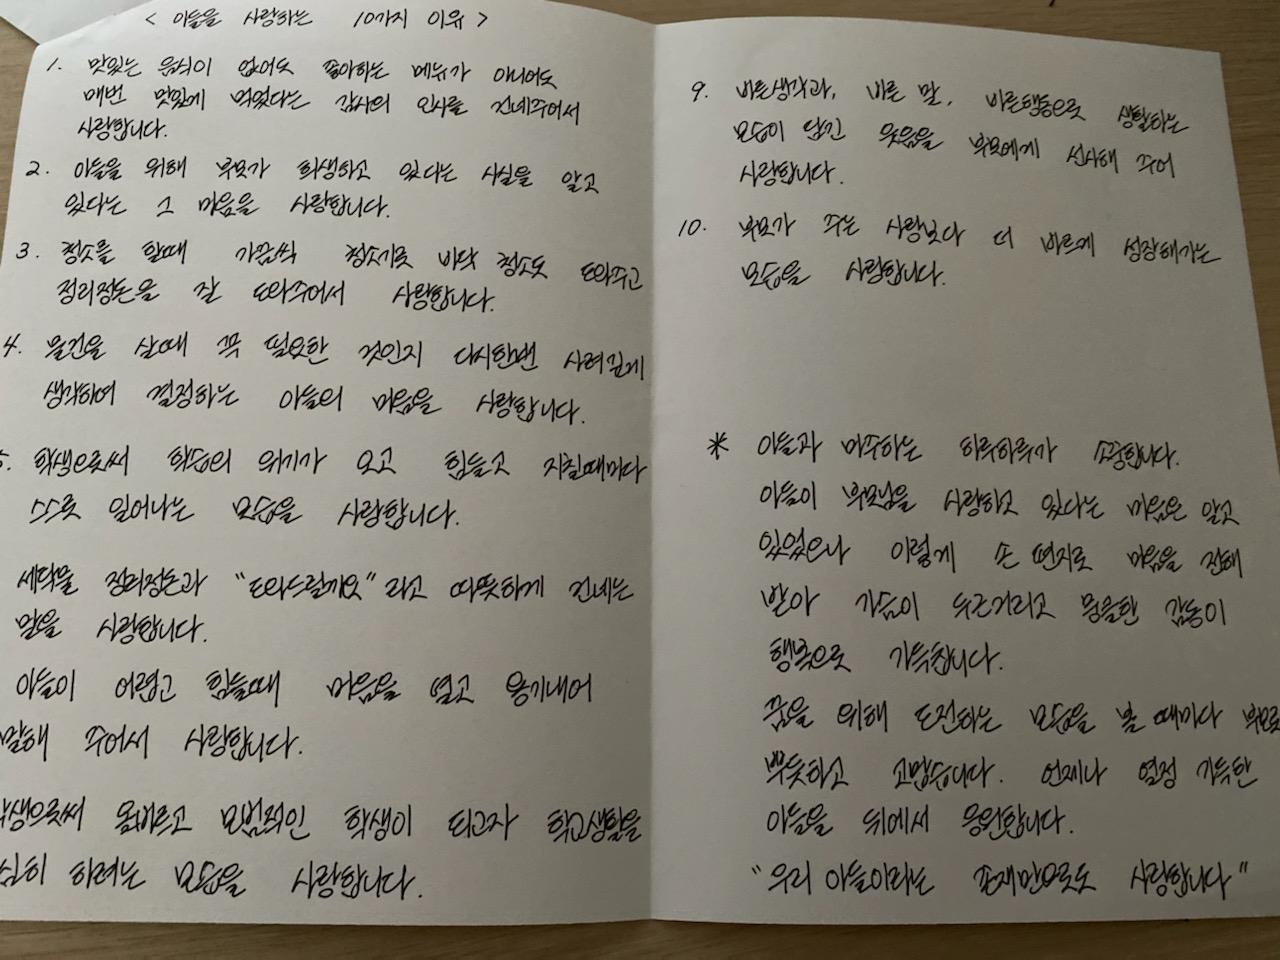 < 아들을 사랑하는 10가지 이유 >
1. 맛있는 음식이 없어도 좋아하는 메뉴가 아니어도
매번 맛있게 먹었다는 감사의 인사를 건네주어서
사랑합니다.
2. 아들을 위해 부모가 희생하고 있다는 사실을 알고
있다는 그 마음을 사랑합니다.
3. 청소를 할때 가끔씩 청소기로 바닥 청소도 도와주고
정리정돈을 잘 도와주어서 사랑합니다.
4. 물건을 살때 꼭 필요한 것인지 다시한번 사려깊게
생각하여 결정하는 아들의 마음을 사랑합니다.
5. 학생으로써 학습의 위기가 오고 힘들고 지칠때마다
스스로 일어나는 모습을 사랑합니다.
세탁물 정리정돈과 "도와드릴까요" 라고 따뜻하게 건네는
말을 사랑합니다.
아들이 어렵고 힘들때 마음을 열고 용기내어
말해 주어서 사랑합니다.
학생으로써 올바르고 모범적인 학생이 되고자 학교생활을
심히 하려는 모습을 사랑합니다.
9. 바른생각과, 바른 말, 바른행동으로 생활하는
모습이 담긴 웃음을 부모에게 선사해 주어
사랑합니다.
10. 부모가 주는 사랑보다 더 바르게 성장해가는
모습을 사랑합니다.
* 아들과 마주하는 하루하루가 소중합니다.
아들이 부모님을 사랑하고 있다는 마음은 알고
있었으나 이렇게 손 편지로 마음을 전해
받아 가슴이 두근거리고 뭉클한 감동이
행복으로 가득합니다.
꿈을 위해 도전하는 모습을 볼 때마다 부모로
뿌듯하고 고맙습니다. 언제나 열정 가득한
아들을 뒤에서 응원합니다.
"우리 아들이라는 존재만으로도 사랑합니다"